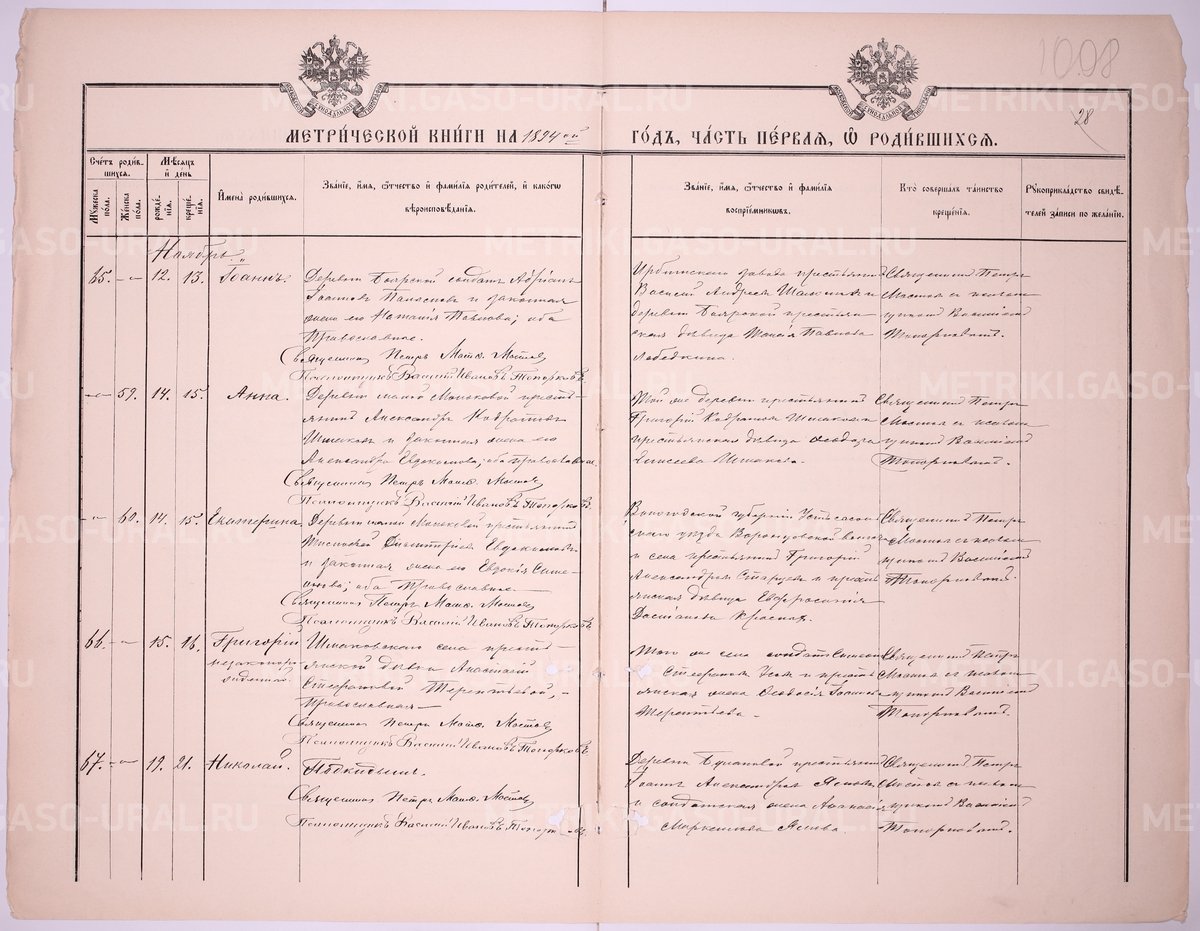 1098
28
МЕТРИ́ЧЕСКОЙ КНИ́ГИ НА 1894 ой ГО́ДЪ, ЧА́СТЬ ПЕ́РВАЯ, Ѡ РОДИ́ВШИХСЯ.
Сче́тъ роди́в-
шихся.
Му́жеска по́ла.
Же́нска по́ла.
Мѣсяцъ и́ день
рожде́нія.
креще́нія.
И́мена роди́вшихся.
Зва́ніе, и́мя, ѻ́тчество и́ фами́лія роди́телей, и́ како́гѡ
вѣроисповѣ́данія.
Зва́ніе, и́мя, ѻ́тчество и́ фами́лія
воспріе́мниковъ.
Кто̀ соверша́лъ та́инство
креще́нія.
Рꙋкоприкла́дство свидѣ́-
телей за́писи по жела́нію.
Ноябрь.
65. 12. 13. Іоаннъ.
Деревни Боярской солдатъ Адріанъ
Іоанновъ и законная
жена его Наталія Павлова; оба
Православные.
Священникъ Петръ Матѳ. Мостовъ
Псаломщикъ Василій Ивановъ Топорковъ
Ирбитскаго завода крестьянинъ
Василій Андреевъ и
деревни Боярской крестьян-
ская дѣвица Павлова
Лебедкина.
Священникъ Петръ
Мостовъ съ псалом-
щикомъ Василіемъ
Топорковымъ.
59. 14. 15. Анна.
Деревни крестьянинъ
Александръ Кодратовъ
и законная жена его
Александра Евдокимова, оба православные.
Священникъ Петръ Матѳ. Мостовъ
Псаломщикъ Василій Ивановъ Топорковъ
Той же деревни крестьянинъ
Григорій Кодратовъ и
крестьянская дѣвица Ѳеодора
Священникъ Петръ
Мостовъ съ псалом-
щикомъ Василіемъ
Топорковымъ.
60. 14. 15. Екатерина
Деревни крестьянинъ
Димитріевъ Евдокимовъ
и законная жена его Евдокія Симе-
онова; оба Православные
Священникъ Петръ Матѳ. Мостовъ
Псаломщикъ Василій Ивановъ Топорковъ
Вологодской губерніи Устьсысоль-
скаго уѣзда Воронцовской волости
и села крестьянинъ Григорій
Александровъ Старцевъ и кресть-
янская дѣвица Евфросинія
Священникъ Петръ
Мостовъ съ псалом-
щикомъ Василіемъ
Топорковымъ.
66. 15. 16. Григорій
незаконно-
рожденный.
Шмаковскаго села кресть-
янской дѣвки Анастасіи
Стефановой Терентьевой,
Православная
Священникъ Петръ Матѳ. Мостовъ
Псаломщикъ Василій Ивановъ Топорковъ
Того же села солдатъ Симеонъ
Стефановъ и кресть-
янская жена Ѳеодосія Іоаннова
Терентьева.
Священникъ Петръ
Мостовъ съ псалом-
щикомъ Василіемъ
Топорковымъ.
67. 19. 21. Николай.
Подкидышъ.
Священникъ Петръ Матѳ. Мостовъ
Псаломщикъ Василій Ивановъ Топорковъ
Деревни Булановой крестьянинъ
Іоаннъ Александровъ Ясновъ
и солдатская жена
Маркелова Яснова
Священникъ Петръ
Мостовъ съ псалом-
щикомъ Василіемъ
Топорковымъ.
METRIKI.GASO-URAL.RU